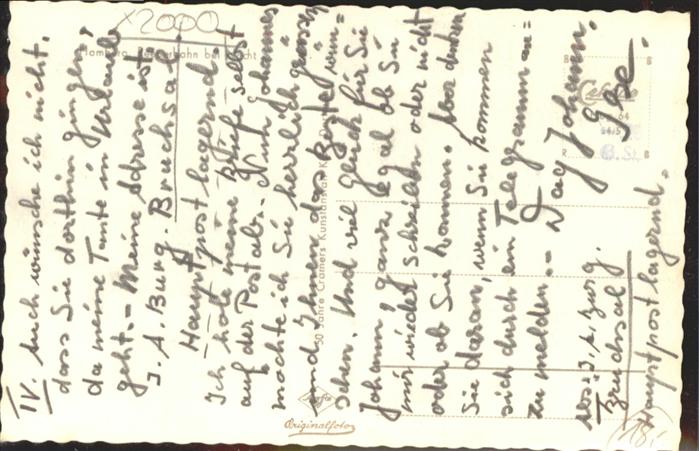 x2000
IV. Auch wünsche ich nicht,
dass Sie dorthin gingen,
da meine Tante in Urlaub
geht. - Meine Adresse ist
J. A. Burg. Bruchsal
Hauptpostlagernd. -
Ich hole meine Briefe selbst
auf der Post ab. - Nun Johannes
möchte ich Sie herrlich grüssen
und Ihnen das Beste wün=
schen. Und viel Glück für Sie
Johann, ganz egal ob Sie
mir wieder schreiben oder nicht
oder ob Sie kommen. Aber denken
Sie daran, wenn Sie kommen
sich durch ein Telegramm an=
zu melden. - Day Johann.
Gese.
Abs: J. A. Burg.
Bruchsal
Hauptpostlagernd.
18,-
Hamburg, Reeperbahn bei Nacht
50 Jahre Cramers Kunstanstalt KG, Do
Originalfoto
64
B. St.
R
B